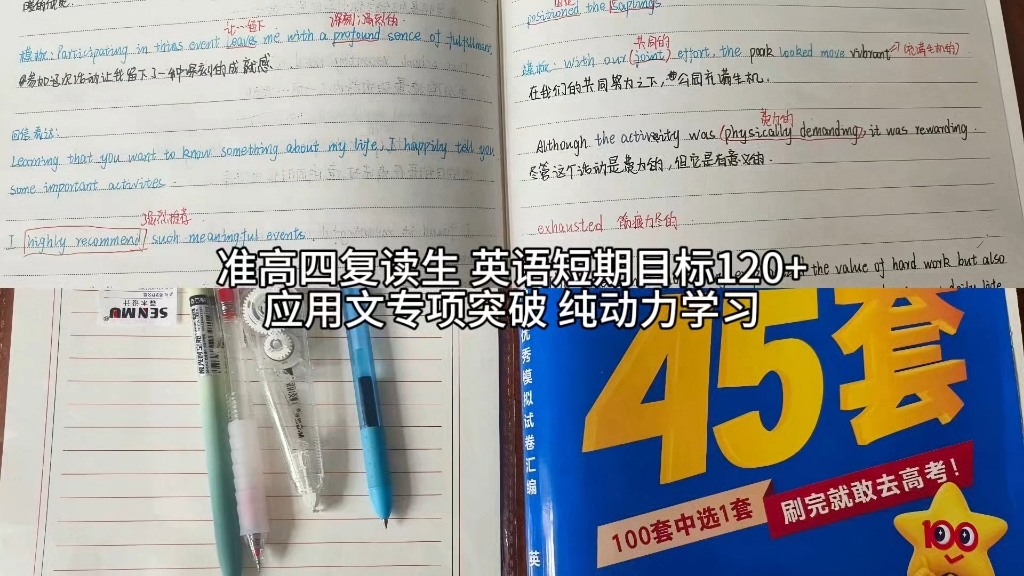 让…留下
深刻;强烈的
模板:Participating in this event leaves me with a profound sence of fulfullment.
参加这次活动让我留下了一种深刻的成就感
回信表达:
Learning that you want to know something about my life, I happily tell you
some important activites.
强烈推荐
I highly recommend such meaningful events
positioned the saplings
共同的
模板: With our (joint) effort, the park looked more vibrant (充满生机的)
在我们的共同努力之下,公园充满生机.
费力的
Although the activity was (physically demanding), it was rewarding.
尽管这个活动是费力的,但它是有意义的.
exhausted 筋疲力尽的
the value of hard work but also
daily life
准高四复读生 英语短期目标120+
应用文专项突破 纯动力学习
SENMU
森木设计
45套
优秀模拟试卷汇编
100套中选1套
刷完就敢去高考!
100
英